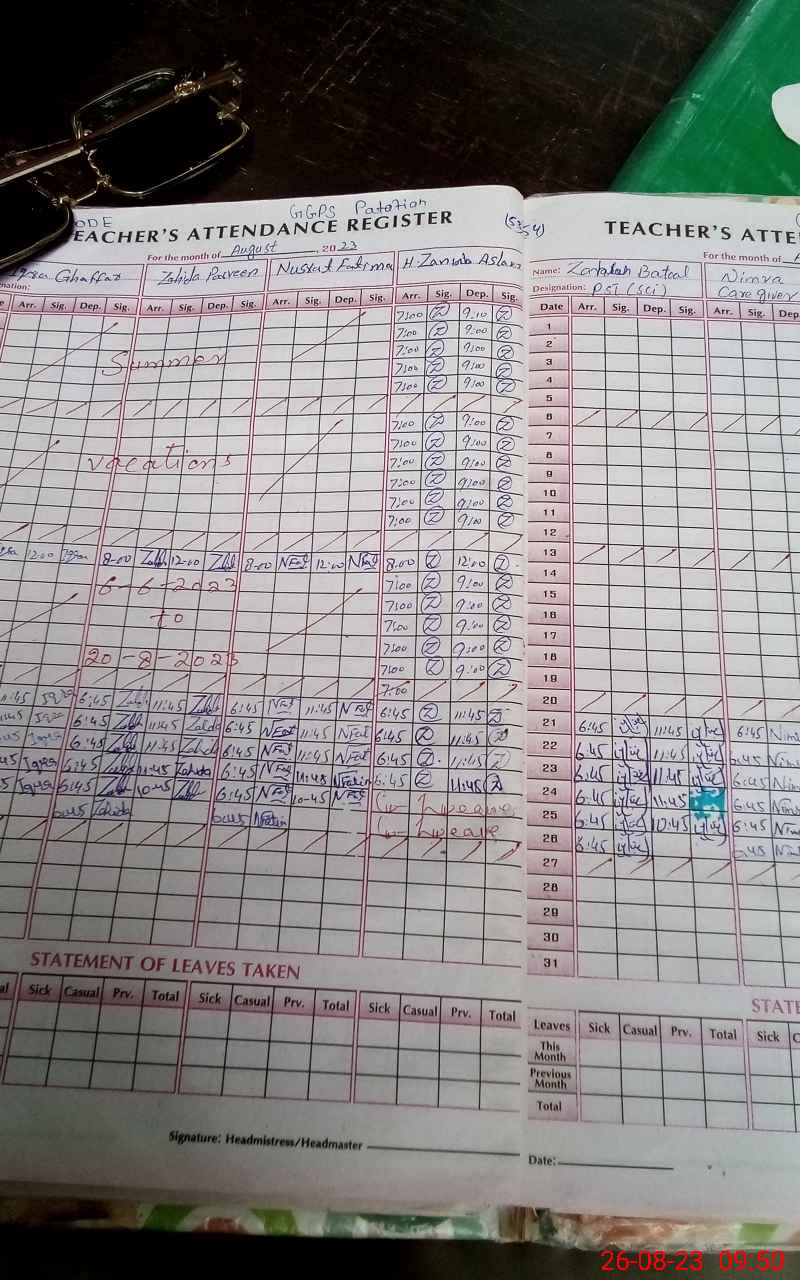 ODE GGPS
EACHER'S ATTENDANCE REGISTER (53/54)
For the month of August, 2023
Ghaffar Zahida Parveen Nusrat Fatima H. Zainab Aslam
nation:
Arr. Sig. Dep. Sig. Arr. Sig. Dep. Sig. Arr. Sig. Dep. Sig. Arr. Sig. Dep. Sig.
7:00 Z 9:00 Z
7:00 Z 9:00 Z
Summer 7:00 Z 9:00 Z
7:00 Z 9:00 Z
7:00 Z 9:00 Z
7:00 Z 9:00 Z
7:00 Z 9:00 Z
vacations 7:00 Z 9:00 Z
7:00 Z 9:00 Z
7:00 Z 9:00 Z
7:00 Z 9:00 Z
12:00 Iqra 8-00 12:00 8:00 NFat 12:00 NFat 8:00 Z 12:00 Z
6-6-2023 7:00 Z 9:00 Z
7:00 Z 9:00 Z
to 7:00 Z 9:00 Z
7:00 Z 9:00 Z
20-8-2023 7:00 Z 9:00 Z
7:00
11:45 Iqra 6:45 11:45 6:45 NFat 11:45 NFat 6:45 Z 11:45 Z
Iqra 6:45 11:45 Zahida 6:45 NFat 11:45 NFat 6:45 Z 11:45 Z
Iqra 6:45 11:45 Zahida 6:45 NFat 11:45 NFat 6:45 Z 11:45 Z
Iqra 6:45 11:45 Zahida 6:45 NFat 11:45 6:45 Z 11:45 Z
Iqra 6:45 10:45 6:45 NFat 10-45 NFat
6:45 Zahida 6:45
STATEMENT OF LEAVES TAKEN
al Sick Casual Prv. Total Sick Casual Prv. Total Sick Casual Prv. Total
Signature: Headmistress/Headmaster
TEACHER'S ATTE
For the month of A
Name: Batool Nimra
Designation: PST (Sci) Care giver
Date Arr. Sig. Dep. Sig. Arr. Sig. Dep
1
2
3
4
5
6
7
8
9
10
11
12
13
14
15
16
17
18
19
20
21 6:45 11:45 6:45
22 6:45 11:45 6:45
23 6:45 11:45 6:45
24 6:45 11:45 6:45
25 6:45 10:45 6:45
26 6:45 6:45
27
28
29
30
31
STATE
Leaves Sick Casual Prv. Total Sick C
This Month
Previous Month
Total
Date:
26-08-23 09:50